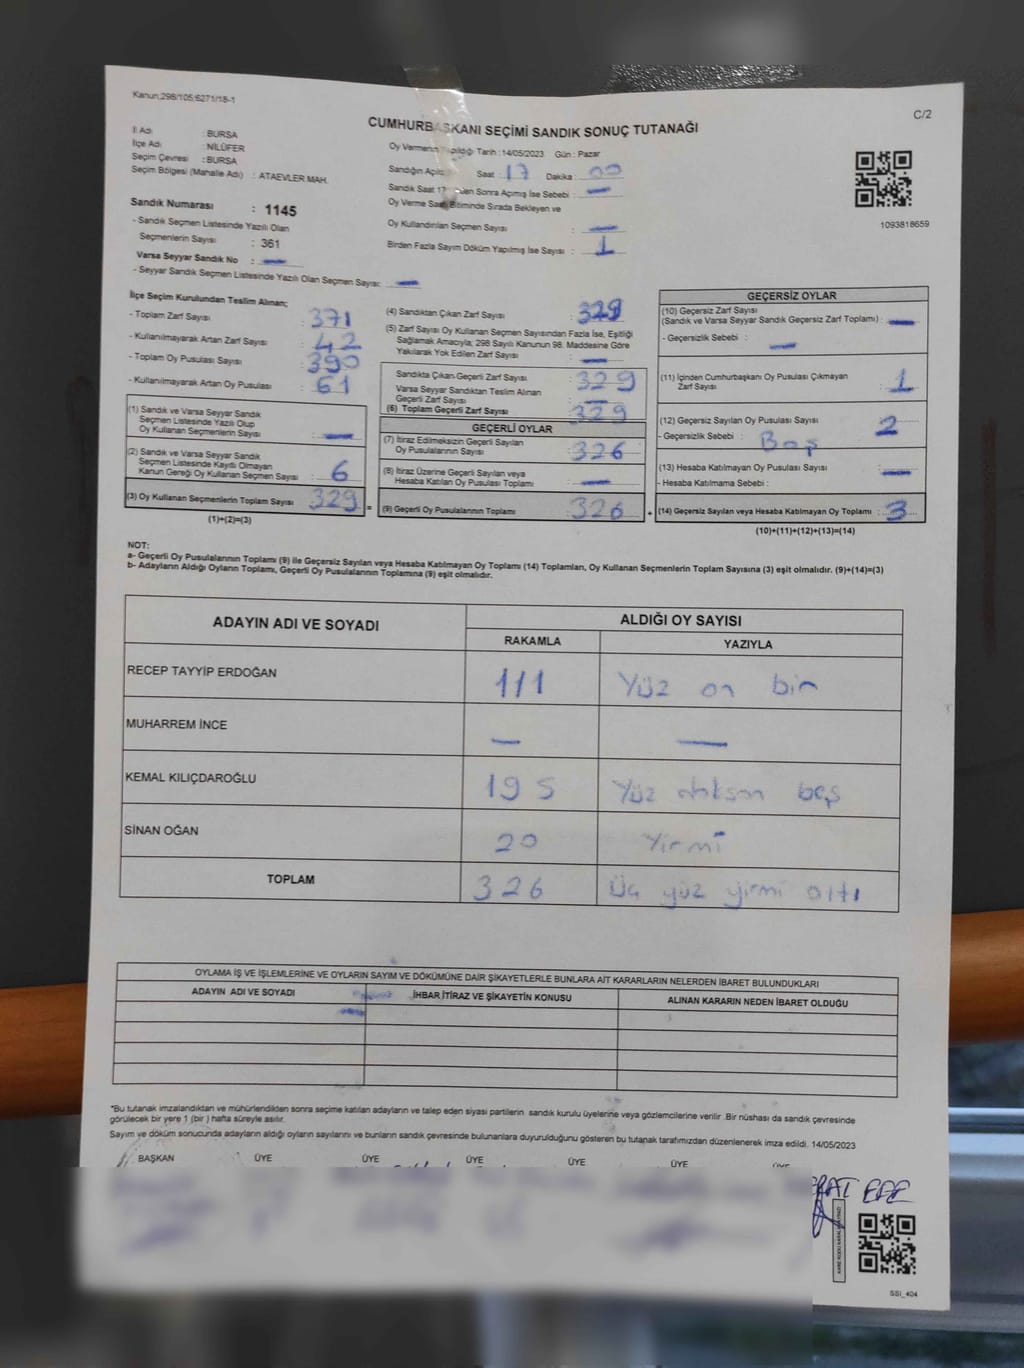 Kanun;298/105/6271/18-1
C/2
CUMHURBAŞKANI SEÇİMİ SANDIK SONUÇ TUTANAĞI
İl Adı : BURSA
İlçe Adı : NİLÜFER
Seçim Çevresi : BURSA
Seçim Bölgesi (Mahalle Adı) : ATAEVLER MAH.
Oy Vermenin Yapıldığı Tarih : 14/05/2023 Gün : Pazar
Sandığın Açılış Saat : 17 Dakika : 00
Sandık Saat 17 den Sonra Açımış İse Sebebi : —
Oy Verme Saati Bitiminde Sırada Bekleyen ve
Oy Kullandırılan Seçmen Sayısı : —
Birden Fazla Sayım Döküm Yapılmış İse Sayısı : 1
1093818659
Sandık Numarası : 1145
- Sandık Seçmen Listesinde Yazılı Olan
Seçmenlerin Sayısı : 361
Varsa Seyyar Sandık No : —
- Seyyar Sandık Seçmen Listesinde Yazılı Olan Seçmen Sayısı: —
İlçe Seçim Kurulundan Teslim Alınan;
- Toplam Zarf Sayısı : 371
- Kullanılmayarak Artan Zarf Sayısı : 42
- Toplam Oy Pusulası Sayısı : 390
- Kullanılmayarak Artan Oy Pusulası : 61
(1) Sandık ve Varsa Seyyar Sandık
Seçmen Listesinde Yazılı Olup
Oy Kullanan Seçmenlerin Sayısı : —
(2) Sandık ve Varsa Seyyar Sandık
Seçmen Listesinde Kayıtlı Olmayan
Kanun Gereği Oy Kullanan Seçmen Sayısı : 6
(3) Oy Kullanan Seçmenlerin Toplam Sayısı : 329
(1)+(2)=(3)
(4) Sandıktan Çıkan Zarf Sayısı : 329
(5) Zarf Sayısı Oy Kullanan Seçmen Sayısından Fazla İse, Eşitliği
Sağlamak Amacıyla; 298 Sayılı Kanunun 98. Maddesine Göre
Yakılarak Yok Edilen Zarf Sayısı : —
Sandıkta Çıkan Geçerli Zarf Sayısı : 329
Varsa Seyyar Sandıktan Teslim Alınan
Geçerli Zarf Sayısı : —
(6) Toplam Geçerli Zarf Sayısı : 329
GEÇERLİ OYLAR
(7) İtiraz Edilmeksizin Geçerli Sayılan
Oy Pusulalarının Sayısı : 326
(8) İtiraz Üzerine Geçerli Sayılan veya
Hesaba Katılan Oy Pusulası Toplamı : —
= (9) Geçerli Oy Pusulalarının Toplamı : 326
GEÇERSİZ OYLAR
(10) Geçersiz Zarf Sayısı
(Sandık ve Varsa Seyyar Sandık Geçersiz Zarf Toplamı) : —
- Geçersizlik Sebebi : —
(11) İçinden Cumhurbaşkanı Oy Pusulası Çıkmayan
Zarf Sayısı : 1
(12) Geçersiz Sayılan Oy Pusulası Sayısı : 2
- Geçersizlik Sebebi : Boş
(13) Hesaba Katılmayan Oy Pusulası Sayısı : —
- Hesaba Katılmama Sebebi :
+ (14) Geçersiz Sayılan veya Hesaba Katılmayan Oy Toplamı : 3
(10)+(11)+(12)+(13)=(14)
NOT:
a- Geçerli Oy Pusulalarının Toplamı (9) ile Geçersiz Sayılan veya Hesaba Katılmayan Oy Toplamı (14) Toplamları, Oy Kullanan Seçmenlerin Toplam Sayısına (3) eşit olmalıdır. (9)+(14)=(3)
b- Adayların Aldığı Oyların Toplamı, Geçerli Oy Pusulalarının Toplamına (9) eşit olmalıdır.
ADAYIN ADI VE SOYADI ALDIĞI OY SAYISI
RAKAMLA YAZIYLA
RECEP TAYYİP ERDOĞAN 111 Yüz on bin
MUHARREM İNCE — —
KEMAL KILIÇDAROĞLU 195 Yüz doksan beş
SİNAN OĞAN 20 Yirmi
TOPLAM 326 Üç yüz yirmi altı
OYLAMA İŞ VE İŞLEMLERİNE VE OYLARIN SAYIM VE DÖKÜMÜNE DAİR ŞİKAYETLERLE BUNLARA AİT KARARLARIN NELERDEN İBARET BULUNDUKLARI
ADAYIN ADI VE SOYADI İHBAR İTİRAZ VE ŞİKAYETİN KONUSU ALINAN KARARIN NEDEN İBARET OLDUĞU
*Bu tutanak imzalandıktan ve mühürlendikten sonra seçime katılan adayların ve talep eden siyasi partilerin sandık kurulu üyelerine veya gözlemcilerine verilir. Bir nüshası da sandık çevresinde
görülecek bir yere 1 (bir ) hafta süreyle asılır.
Sayım ve döküm sonucunda adayların aldığı oyların sayılarını ve bunların sandık çevresinde bulunanlara duyurulduğunu gösteren bu tutanak tarafımızdan düzenlenerek imza edildi. 14/05/2023
BAŞKAN ÜYE ÜYE ÜYE ÜYE ÜYE ÜYE
SSI_404